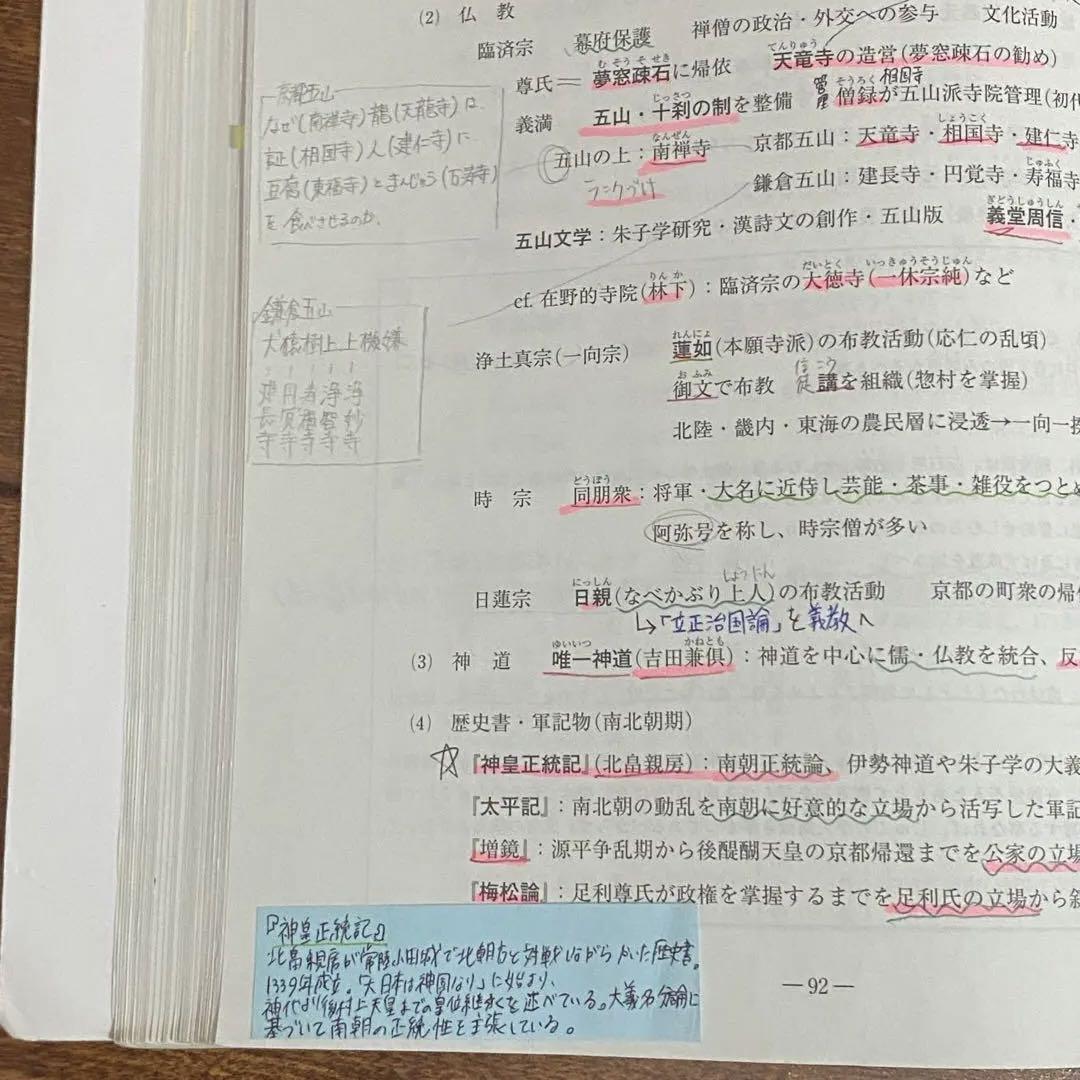 (2) 仏教
臨済宗 幕府保護 禅僧の政治・外交への参与 文化活動
尊氏＝夢窓疎石に帰依 天竜寺の造営(夢窓疎石の勧め)
むそうそせき てんりゅう
義満 五山・十刹の制を整備 管理 僧録が五山派寺院管理(初代
じっさつ そうろく 相国寺
五山の上：南禅寺 京都五山：天竜寺・相国寺・建仁寺
なんぜん しょうこく
ランクづけ
鎌倉五山：建長寺・円覚寺・寿福寺
じゅふく
五山文学：朱子学研究・漢詩文の創作・五山版 義堂周信・
ぎどうしゅうしん
cf. 在野的寺院(林下)：臨済宗の大徳寺(一休宗純)など
りんか だいとく いっきゅうそうじゅん
浄土真宗(一向宗) 蓮如(本願寺派)の布教活動(応仁の乱頃)
れんにょ
御文で布教 講を組織(惣村を掌握)
おふみ
北陸・畿内・東海の農民層に浸透→一向一揆
時宗 同朋衆：将軍・大名に近侍し芸能・茶事・雑役をつとめ
どうぼう
阿弥号を称し、時宗僧が多い
日蓮宗 日親(なべかぶり上人)の布教活動 京都の町衆の帰依
にっしん しょうにん
↳「立正治国論」を義教へ
(3) 神道 唯一神道(吉田兼俱)：神道を中心に儒・仏教を統合、反
ゆいいつ かねとも
(4) 歴史書・軍記物(南北朝期)
☆『神皇正統記』(北畠親房)：南朝正統論、伊勢神道や朱子学の大義
『太平記』：南北朝の動乱を南朝に好意的な立場から活写した軍記
『増鏡』：源平争乱期から後醍醐天皇の京都帰還までを公家の立場
『梅松論』：足利尊氏が政権を掌握するまでを足利氏の立場から
―92―
京都五山
なぜ(南禅寺)龍(天龍寺)は、
証(相国寺)人(建仁寺)に
豆腐(東福寺)とまんじゅう(万寿寺)
を食べさせるのか。
鎌倉五山
大樹上上機嫌
建円寿浄浄
長覚福智妙
寺寺寺寺寺
『神皇正統記』
北畠親房が常陸小田城で北朝方と対戦しながらかいた歴史書。
1339年成立。「大日本は神国なり」に始まり、
神代より後村上天皇までの皇位継承を述べている。大義名分論に
基づいて南朝の正統性を主張している。